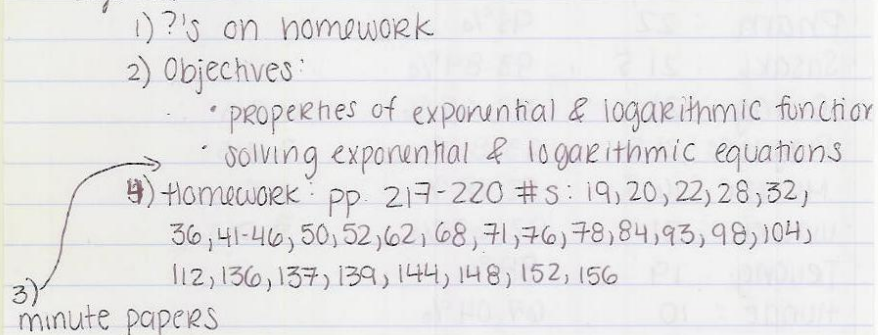 1) ?'s on homework
2) Objectives:
• properties of exponential & logarithmic function
• solving exponential & logarithmic equations
4) Homework: pp. 217-220 #s: 19, 20, 22, 28, 32,
36, 41-46, 50, 52, 62, 68, 71, 76, 78, 84, 93, 98, 104,
112, 136, 137, 139, 144, 148, 152, 156
3)
minute papers